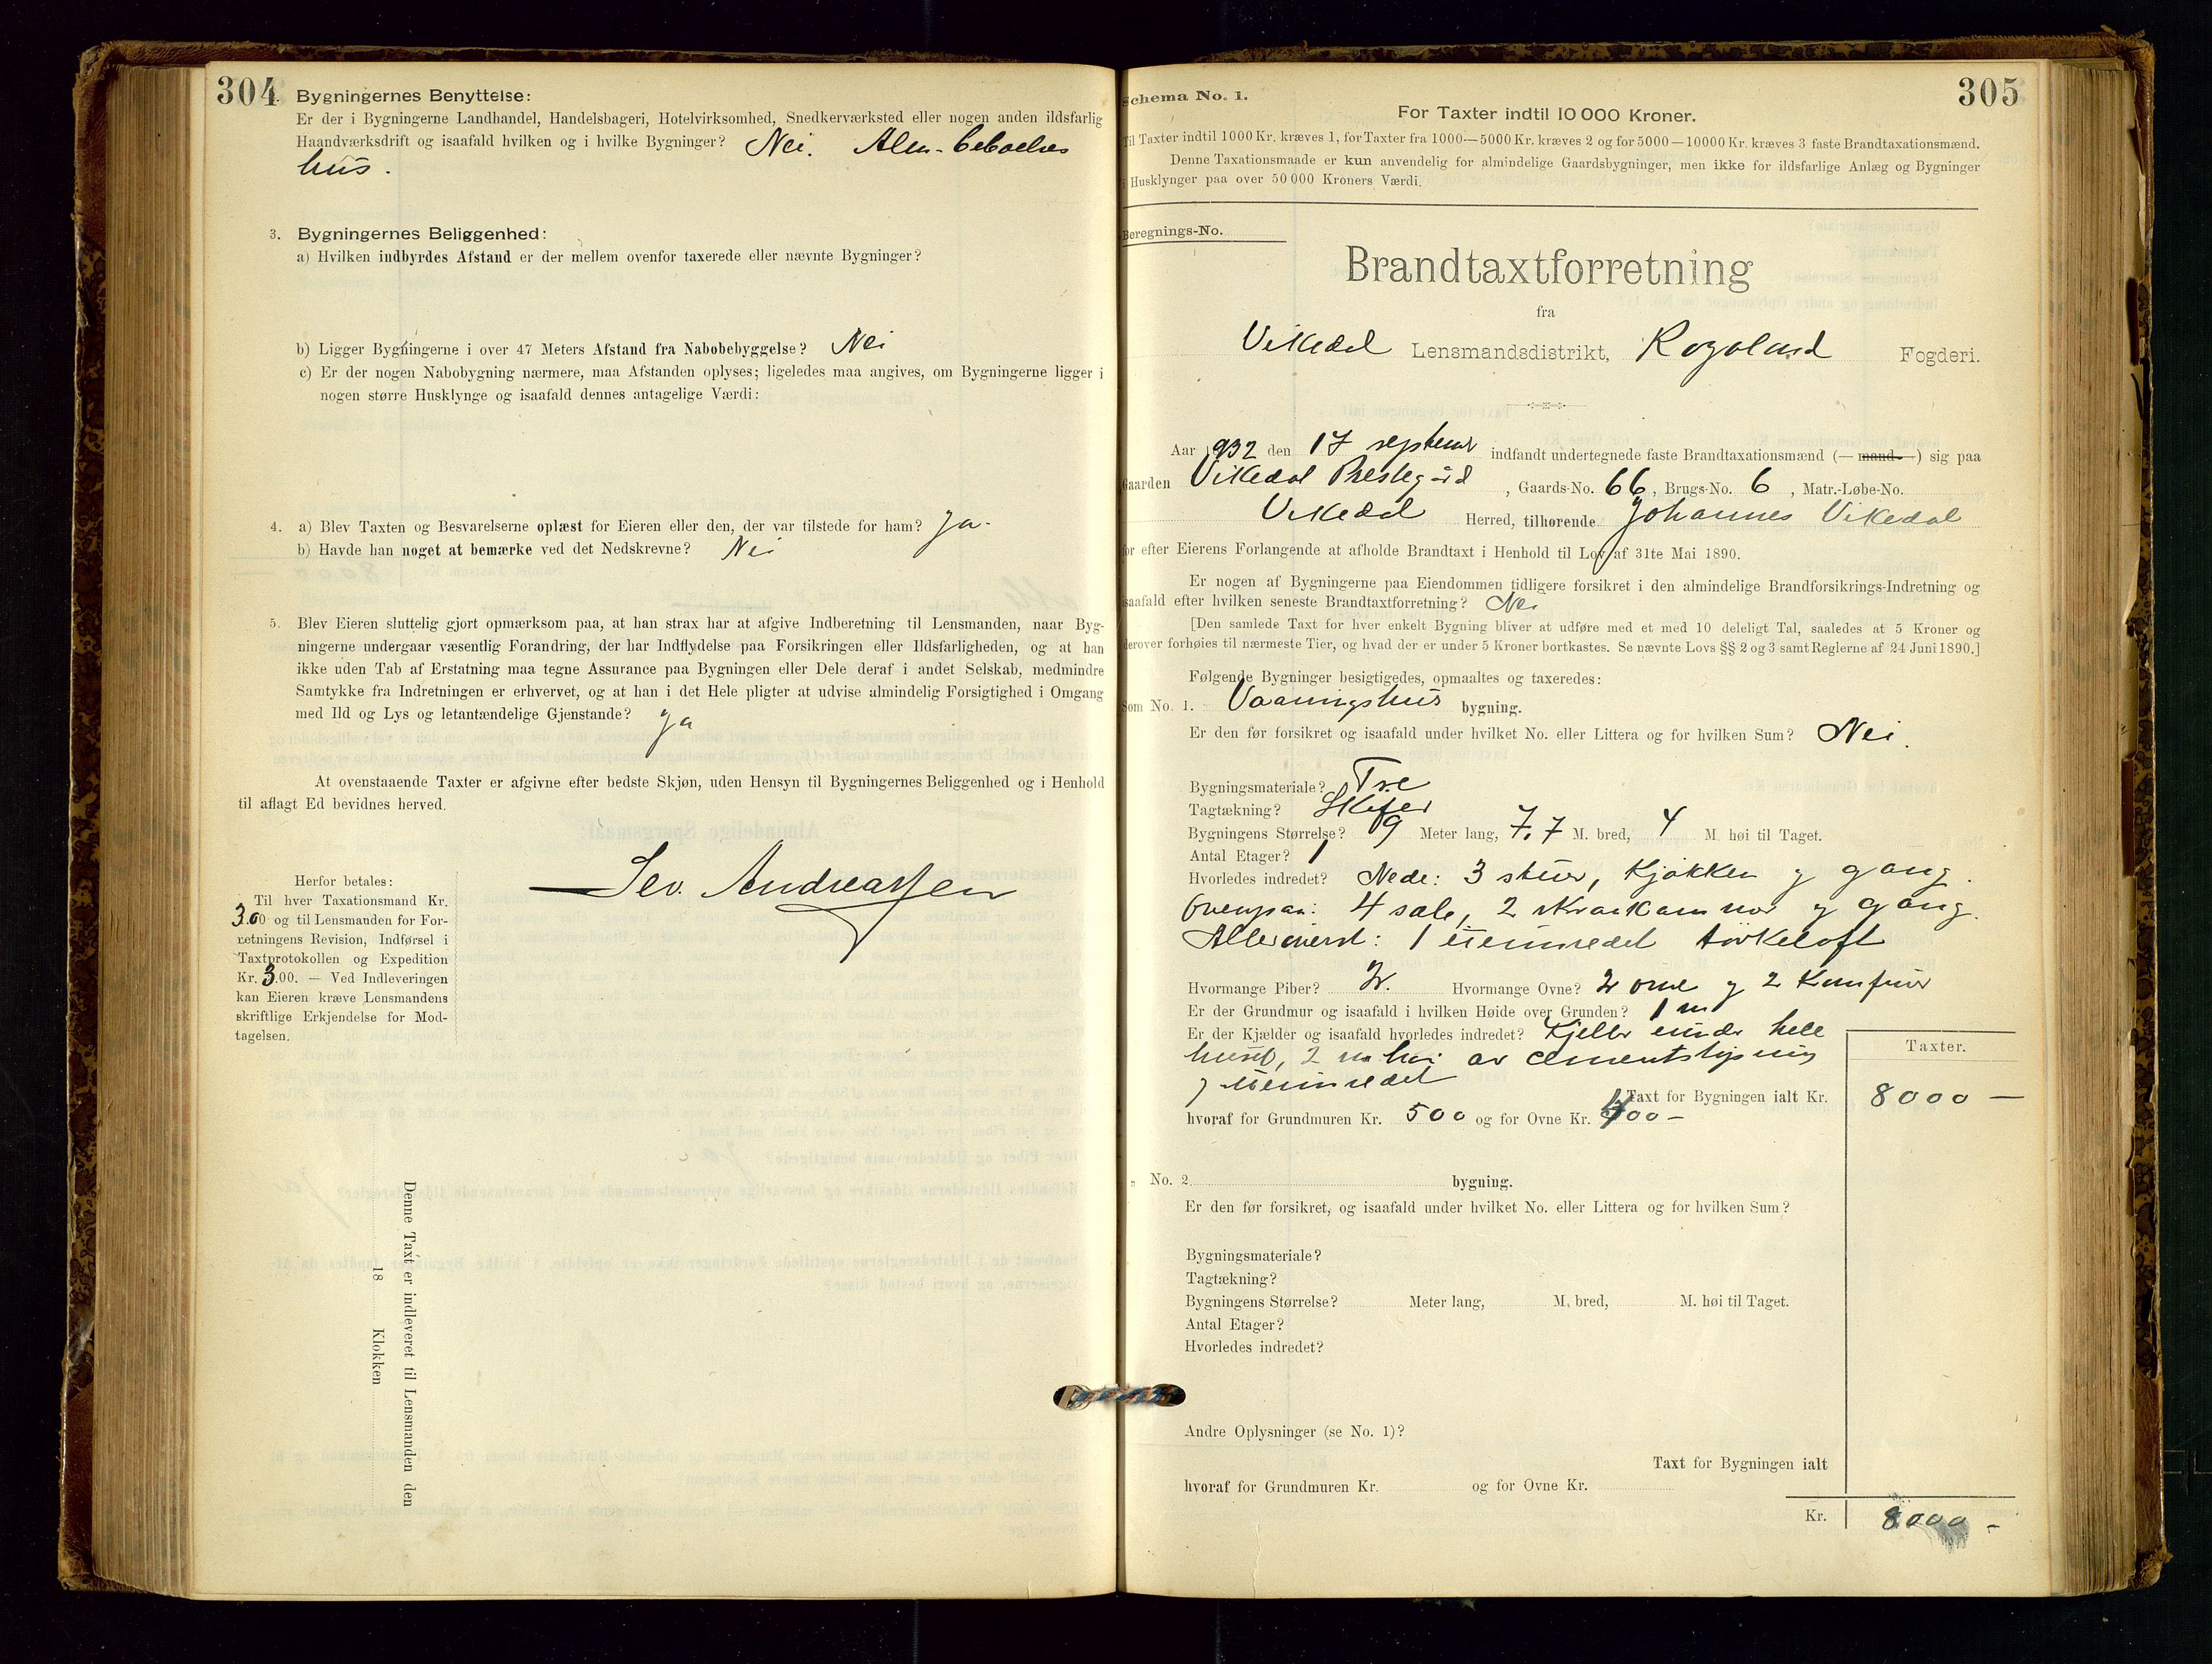 304
Bygningernes Benyttelse:
Er der i Bygningerne Landhandel, Handelsbageri, Hotelvirksomhed, Snedkerværksted eller nogen anden ildsfarlig
Haandværksdrift og isaafald hvilken og i hvilke Bygninger? Nei. Alm. beboelses
hus.
3. Bygningernes Beliggenhed:
a) Hvilken indbyrdes Afstand er der mellem ovenfor taxerede eller nævnte Bygninger?
b) Ligger Bygningerne i over 47 Meters Afstand fra Nabobebyggelse? Nei
c) Er der nogen Nabobygning nærmere, maa Afstanden oplyses; ligeledes maa angives, om Bygningerne ligger i
nogen større Husklynge og isaafald dennes antagelige Værdi:
4. a) Blev Taxten og Besvarelserne oplæst for Eieren eller den, der var tilstede for ham? Ja.
b) Havde han noget at bemærke ved det Nedskrevne? Nei
5. Blev Eieren sluttelig gjort opmærksom paa, at han strax har at afgive Indberetning til Lensmanden, naar Byg-
ningerne undergaar væsentlig Forandring, der har Indflydelse paa Forsikringen eller Ildsfarligheden, og at han
ikke uden Tab af Erstatning maa tegne Assurance paa Bygningen eller Dele deraf i andet Selskab, medmindre
Samtykke fra Indretningen er erhvervet, og at han i det Hele pligter at udvise almindelig Forsigtighed i Omgang
med Ild og Lys og letantændelige Gjenstande? Ja
At ovenstaaende Taxter er afgivne efter bedste Skjøn, uden Hensyn til Bygningernes Beliggenhed og i Henhold
til aflagt Ed bevidnes herved.
Sev. Andreassen
Herfor betales:
Til hver Taxationsmand Kr.
3.00 og til Lensmanden for For-
retningens Revision, Indførsel i
Taxtprotokollen og Expedition
Kr. 3.00. — Ved Indleveringen
kan Eieren kræve Lensmandens
skriftlige Erkjendelse for Mod-
tagelsen.
Denne Taxt er indleveret til Lensmanden den
18 Klokken
305
Schema No. 1.
For Taxter indtil 10 000 Kroner.
Til Taxter indtil 1000 Kr. kræves 1, for Taxter fra 1000—5000 Kr. kræves 2 og for 5000—10000 Kr. kræves 3 faste Brandtaxationsmænd.
Denne Taxationsmaade er kun anvendelig for almindelige Gaardsbygninger, men ikke for ildsfarlige Anlæg og Bygninger
i Husklynger paa over 50 000 Kroners Værdi.
Beregnings-No.
Brandtaxtforretning
fra
Vikedal Lensmandsdistrikt, Rogaland Fogderi.
Aar 1932 den 17 septemr indfandt undertegnede faste Brandtaxationsmænd (— mand—) sig paa
Gaarden Vikedal Prestegård, Gaards-No. 66, Brugs-No. 6, Matr.-Løbe-No.
Vikedal Herred, tilhørende Johannes Vikedal
for efter Eierens Forlangende at afholde Brandtaxt i Henhold til Lov af 31te Mai 1890.
Er nogen af Bygningerne paa Eiendommen tidligere forsikret i den almindelige Brandforsikrings-Indretning og
isaafald efter hvilken seneste Brandtaxtforretning? Nei
[Den samlede Taxt for hver enkelt Bygning bliver at udføre med et med 10 deleligt Tal, saaledes at 5 Kroner og
derover forhøies til nærmeste Tier, og hvad der er under 5 Kroner bortkastes. Se nævnte Lovs §§ 2 og 3 samt Reglerne af 24 Juni 1890.]
Følgende Bygninger besigtigedes, opmaaltes og taxeredes:
Som No. 1. Vaaningshus bygning.
Er den før forsikret og isaafald under hvilket No. eller Littera og for hvilken Sum? Nei.
Bygningsmateriale? Tre
Tagtækning? Skifer
Bygningens Størrelse? 9 Meter lang, 7,7 M. bred, 4 M. høi til Taget.
Antal Etager? 1
Hvorledes indredet? Nede: 3 stuer, Kjøkken og gang.
Ovenpaa: 4 sale, 2 skraakammer og gang.
Alleroverst: 1 uinnredet tørkeloft
Hvormange Piber? 2. Hvormange Ovne? 2 ovne og 2 Komfuir
Er der Grundmur og isaafald i hvilken Høide over Grunden? 1 m
Er der Kjælder og isaafald hvorledes indredet? Kjeller under hele
huset, 2 m høi av cementstøpning
og uinnredet
Taxter.
Taxt for Bygningen ialt Kr. 8000 —
hvoraf for Grundmuren Kr. 500 og for Ovne Kr. 400 —
„ No. 2 bygning.
Er den før forsikret, og isaafald under hvilket No. eller Littera og for hvilken Sum?
Bygningsmateriale?
Tagtækning?
Bygningens Størrelse? Meter lang, M. bred, M. høi til Taget.
Antal Etager?
Hvorledes indredet?
Andre Oplysninger (se No. 1)?
Taxt for Bygningen ialt
hvoraf for Grundmuren Kr. og for Ovne Kr.
Kr. 8000 —